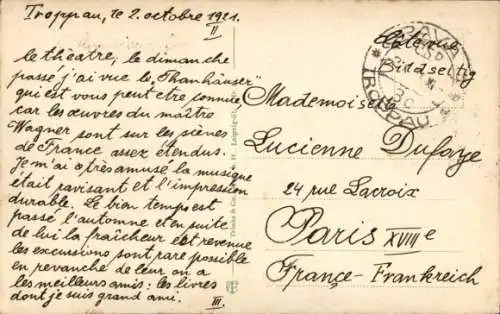 Troppau, le 2. octobre 1921.
II
le théatre, le dimanche
passé j'ai vue le "Thanhäuser"
qui est vous peut etre connue,
car les œuvres du maîtro
Wagner sont sur les scènes
de France assez étendus.
Je m'ai après amusé la musique
était ravisant et l'impression
durable. Le bon temps est
passé l'automne et en suite
de lui la fraîcheur est revenue
les excussions sont rare possible
en revanche de leur on a
les meilleurs amis: les livres
dont je suis grand ami.
III.
TROPPAU
Bildseitig
Mademoiselle
Lucienne Dufaye
24 rue Lacroix
Paris XVIIIe
France-Frankreich